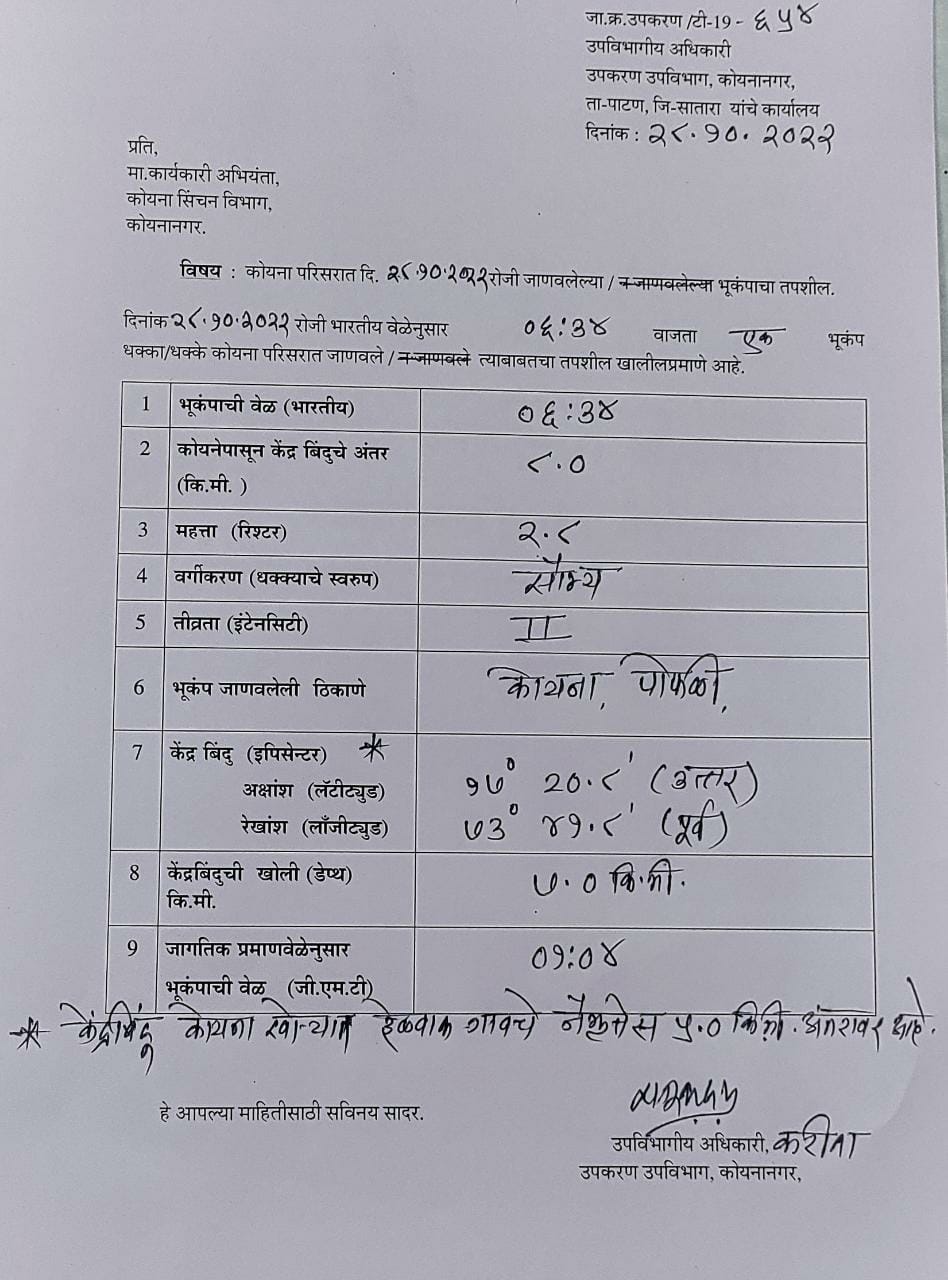 जा.क्र.उपकरण /टी-19 - ६५४
उपविभागीय अधिकारी
उपकरण उपविभाग, कोयनानगर,
ता-पाटण, जि-सातारा यांचे कार्यालय
दिनांक : २८.१०.२०२२
प्रति,
मा.कार्यकारी अभियंता,
कोयना सिंचन विभाग,
कोयनानगर.
विषय : कोयना परिसरात दि. २८.१०.२०२२ रोजी जाणवलेल्या / न जाणवलेल्या भूकंपाचा तपशील.
दिनांक २८.१०.२०२२ रोजी भारतीय वेळेनुसार ०६:३४ वाजता एक भूकंप
धक्का/धक्के कोयना परिसरात जाणवले / न जाणवले त्याबाबतचा तपशील खालीलप्रमाणे आहे.
1 भूकंपाची वेळ (भारतीय) ०६:३४
2 कोयनेपासून केंद्र बिंदुचे अंतर
(कि.मी. ) ८.०
3 महत्ता (रिश्टर) २.८
4 वर्गीकरण (धक्क्याचे स्वरुप) सौम्य
5 तीव्रता (इंटेनसिटी) II
6 भूकंप जाणवलेली ठिकाणे कोयना, पोफळी,
7 केंद्र बिंदु (इपिसेन्टर) *
अक्षांश (लॅटीट्युड) १७° २०.८' (उत्तर)
रेखांश (लाँजीट्युड) ७३° ४१.८' (पूर्व)
8 केंद्रबिंदुची खोली (डेप्थ)
कि.मी. ७.० कि.मी.
9 जागतिक प्रमाणवेळेनुसार
भूकंपाची वेळ (जी.एम.टी) ०१:०४
* केंद्रबिंदू कोयना खोऱ्यात हेळवाक गावचे नैऋत्येस ५.० कि.मी. अंतरावर आहे.
हे आपल्या माहितीसाठी सविनय सादर.
उपविभागीय अधिकारी, करीता
उपकरण उपविभाग, कोयनानगर,